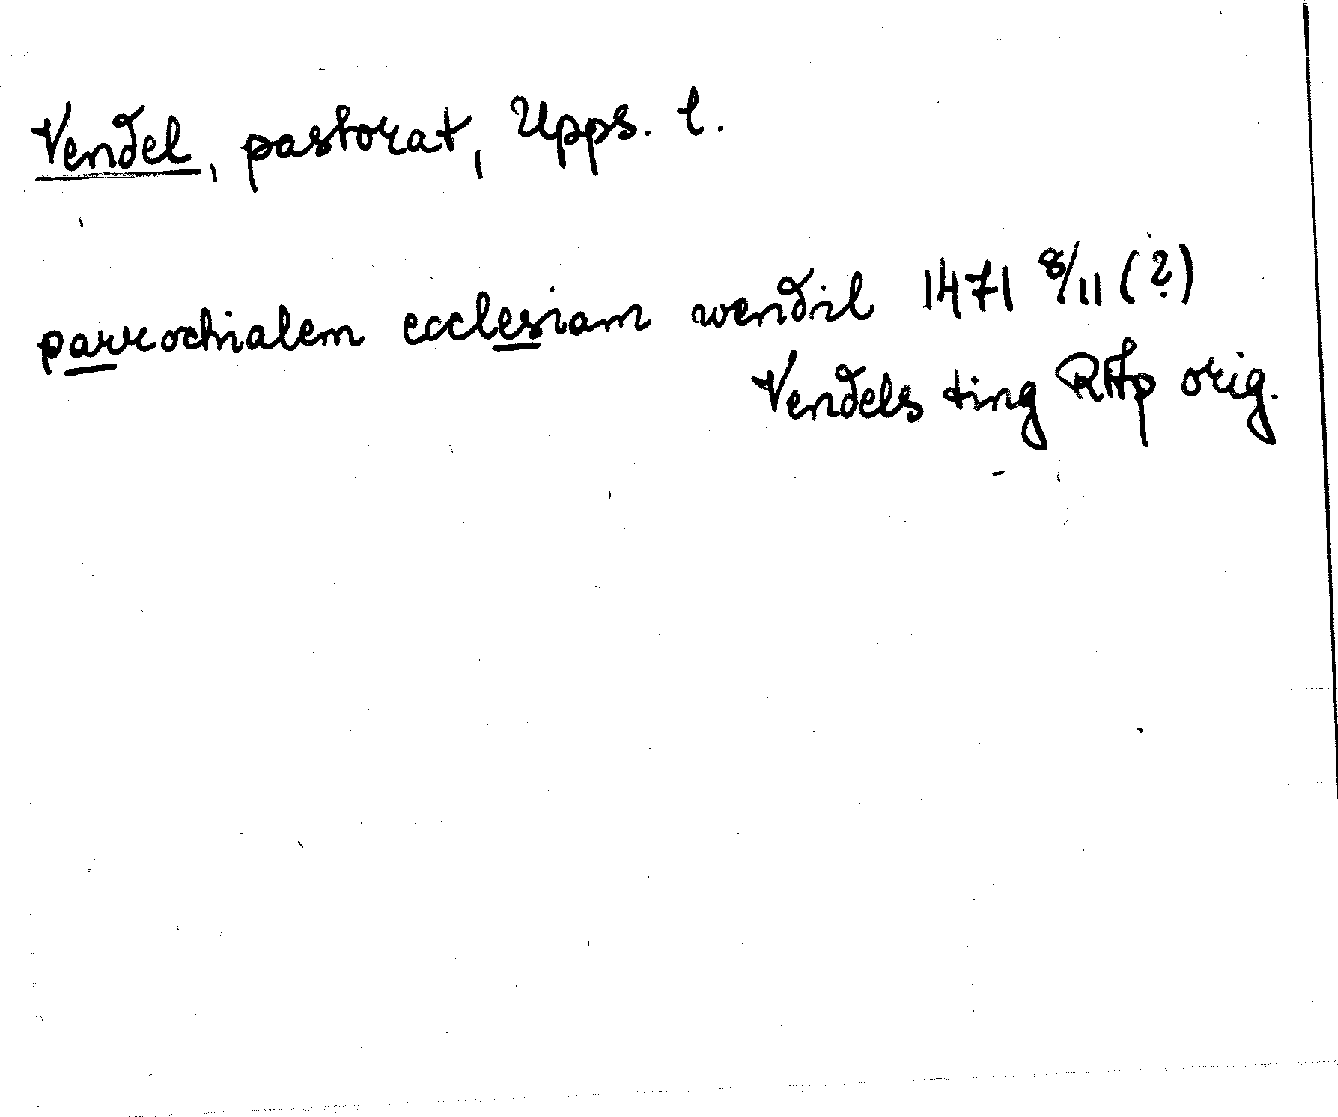 Vendel, pastorat, Upps. l.
parrochialem ecclesiam wendil 1471 8/11 (?)
Vendels ting RAp orig.